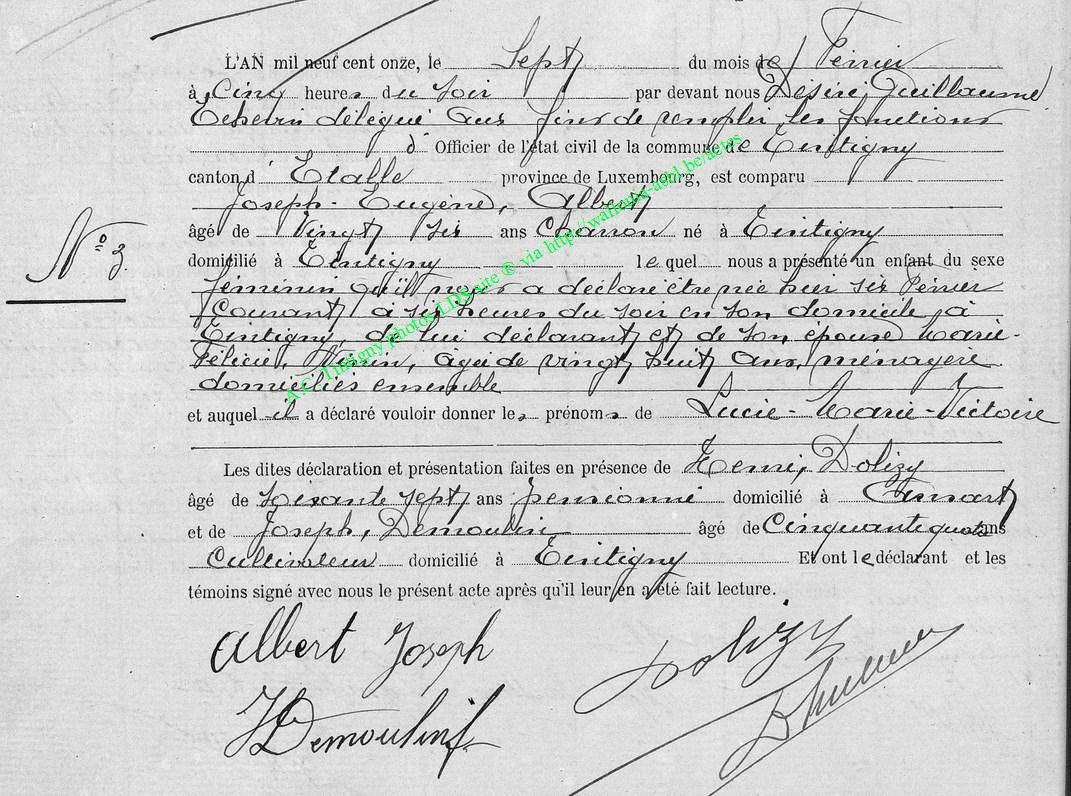 L'AN mil neuf cent onze, le Sept du mois de Février
à Cinq heures du soir par devant nous Désiré, Guillaume
Echevin délégué aux fins de remplir les fonctions
d' Officier de l'état civil de la commune de Tintigny
canton d' Etalle province de Luxembourg, est comparu
Joseph-Eugène, Albert
âgé de Vingt six ans Charron né à Tintigny
N° 3
domicilié à Tintigny lequel nous a présenté un enfant du sexe
féminin qu'il nous a déclaré être née hier six Février
Courant à six heures du soir en son domicile à
Tintigny, de lui déclarant et de son épouse Marie-
Félicie, agée de vingt huit ans, ménagère
domiciliés ensemble
et auquel il a déclaré vouloir donner les prénoms de Lucie-Marie-Victoire
Les dites déclaration et présentation faites en présence de Henri, Dolizy
âgé de soixante sept ans pensionné domicilié à Ansart
et de Joseph, Demoulin âgé de Cinquante quatre ans
Cultivateur domicilié à Tintigny Et ont le déclarant et les
témoins signé avec nous le présent acte après qu'il leur en a été fait lecture.
Albert Joseph
Dolizy
Demoulin
A.C. Tintigny photos LDS site ® via http://wallonia-asbl.be/actes